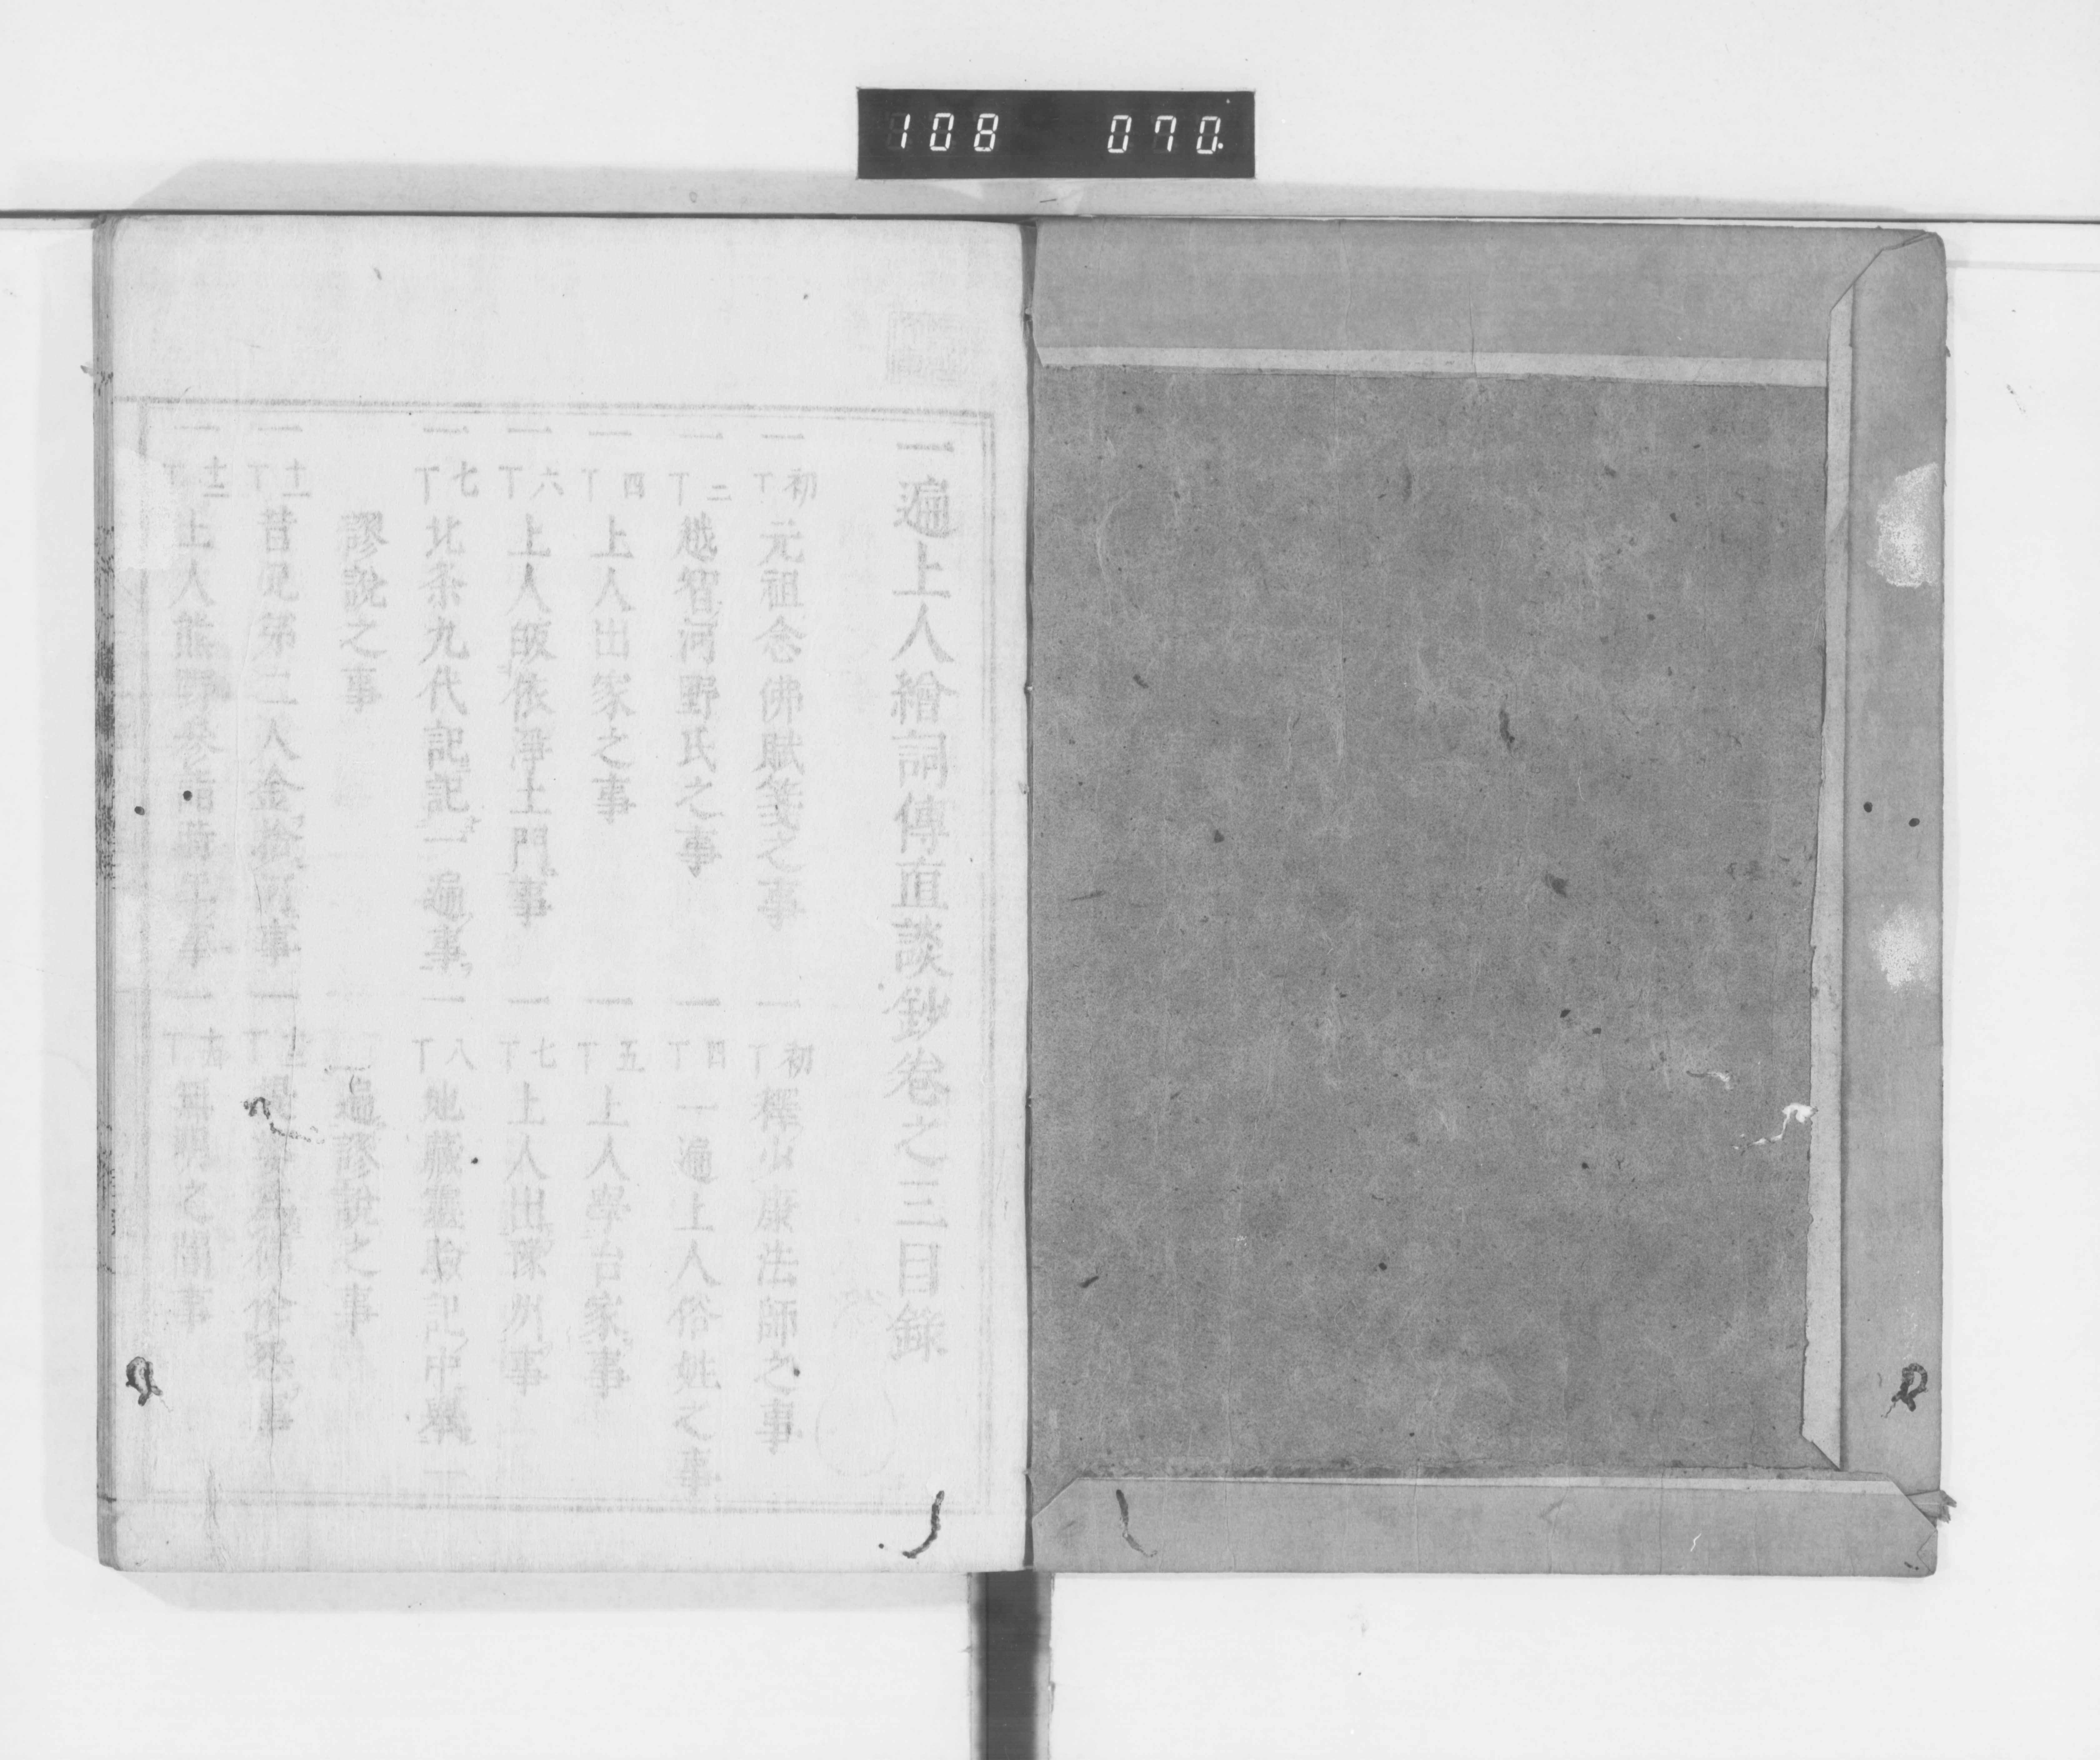 108 070
一遍上人繪詞傳直談鈔卷之三目錄
一 初丁 元祖念佛賦筭之事
一 初丁 釋少康法師之事
一 二丁 越智河野氏之事
一 四丁 一遍上人俗姓之事
一 四丁 上人出家之事
一 五丁 上人學台家事
一 六丁 上人皈依淨土門事
一 七丁 上人出豫州事
一 七丁 北条九代記記一遍事
一 八丁 地藏靈驗記中舉一
謬說之事
遍謬說之事
一 十一丁 昔兄弟二人金捨河事
一 十二丁 上人熊野參詣 事
之 事